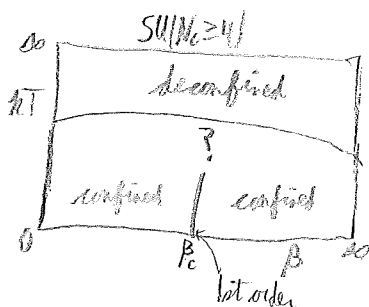 SU(Nc ≥ 4)
∞
kT
deconfined
?
confined
confined
0
βc
β
∞
1st order